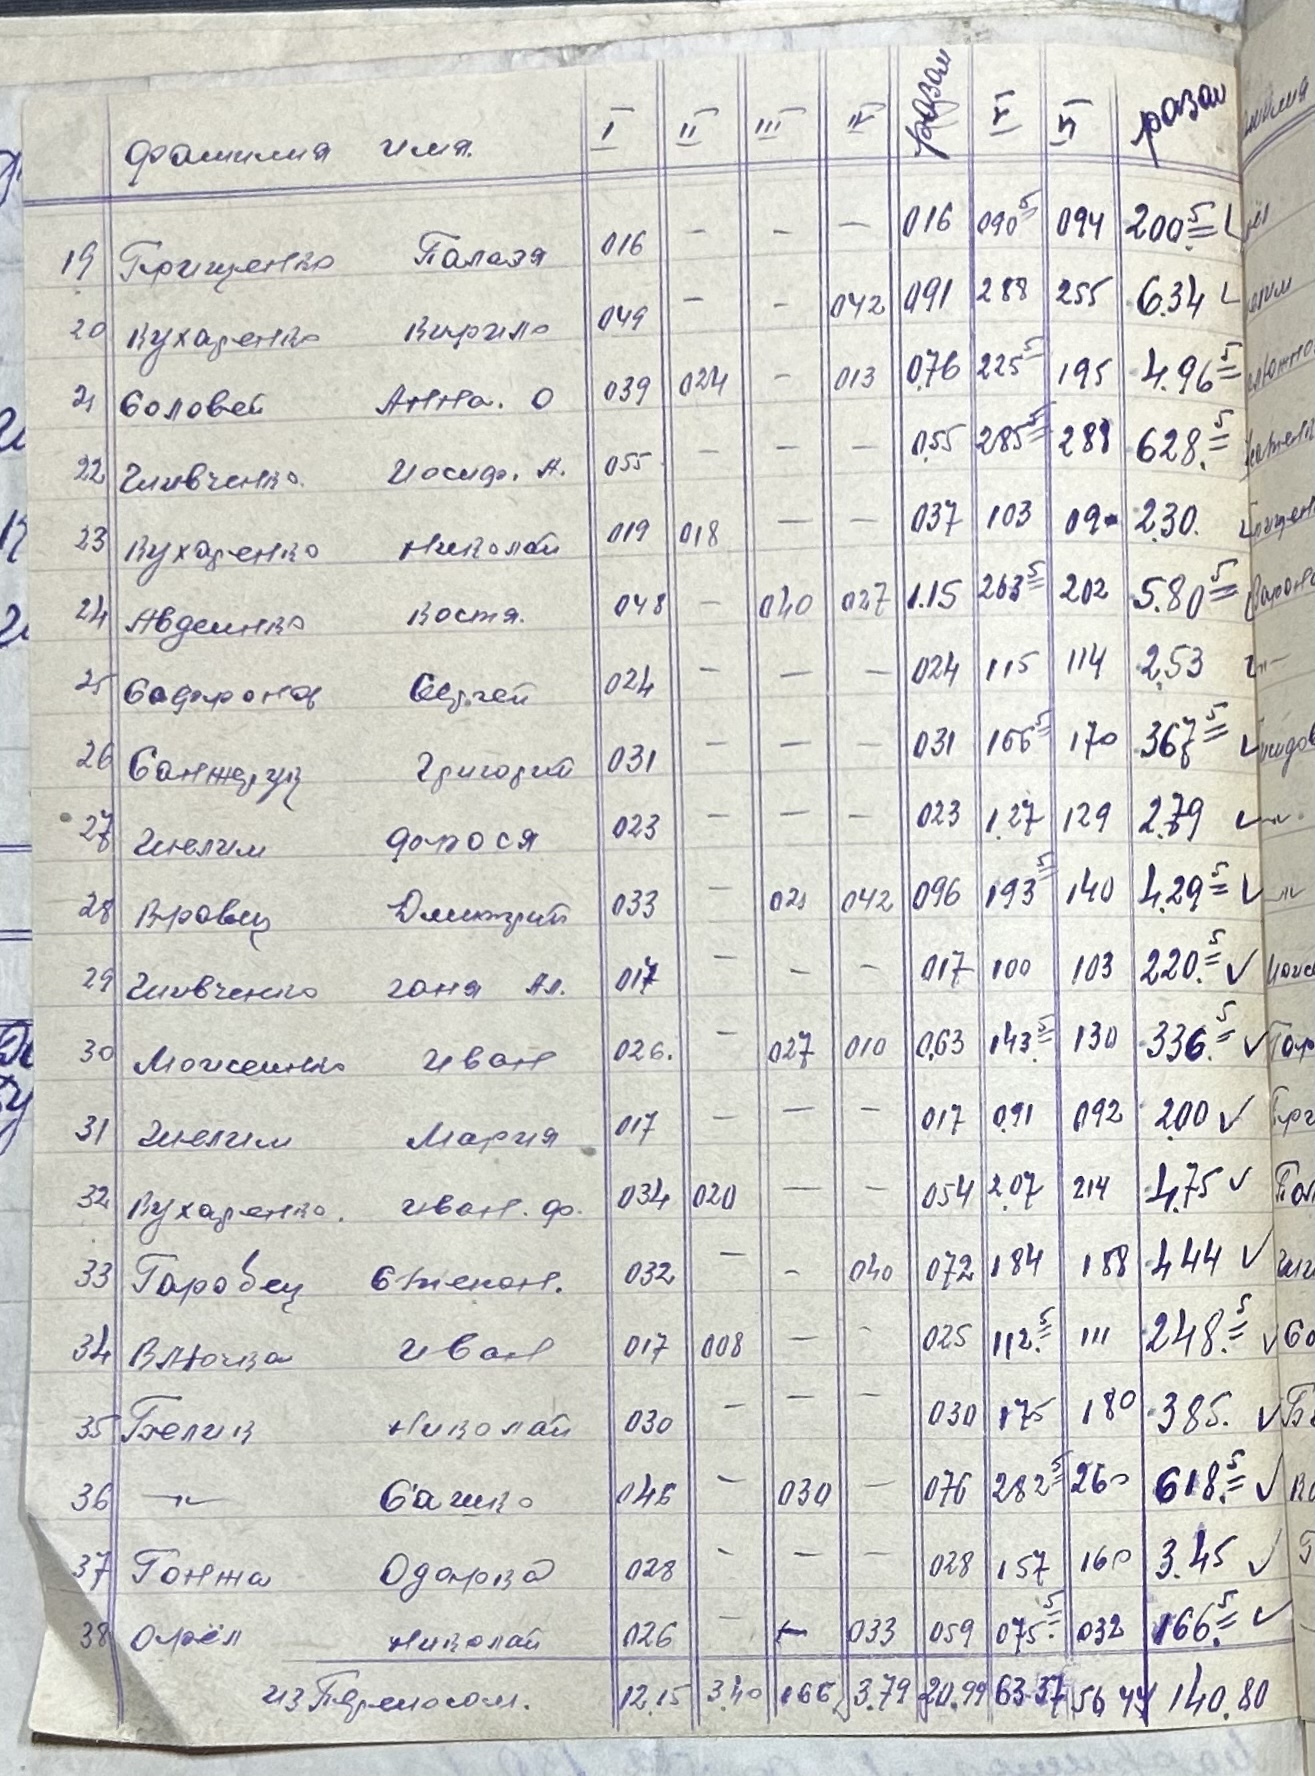 фамилия имя. I II III IV разом V VI разом
19 Грищенко Палазя 016 — — — 016 090⁵ 094 200⁵
20 Кухаренко Кирило 049 — — 042 091 288 255 6.34
21 Соловей Анна. О 039 024 — 013 076 225⁵ 195 4.96⁵
22 Шивченко. Иосиф. А. 055 — — — 055 285⁵ 288 628.⁵
23 Кухаренко Николай 019 018 — — 037 103 09 2.30.
24 Авдеинко Костя. 048 — 040 027 1.15 263⁵ 202 5.80⁵
25 Сафронов Сергей 024 — — — 024 115 114 2.53
26 Санжаруц Григорий 031 — — — 031 166⁵ 170 367⁵
27 Шелим Фрося 023 — — — 023 1.27 129 2.79
28 Кровец Дмитрий 033 — 021 042 096 193⁵ 140 4.29⁵
29 Шивченко Ганя Ал. 017 — — — 017 100 103 220.⁵
30 Моисеинко Иван 026. — 027 010 063 143.⁵ 130 336.⁵
31 Шелим Мария 017 — — — 017 091 092 200
32 Кухаренко. Иван. Ф. 034 020 — — 054 207 214 4.75
33 Горовец Степан. 032 — - 040 072 184 188 444
34 Клочко Иван 017 008 — - 025 112.⁵ 111 248.⁵
35 Белик Николай 030 - — — 030 175 180 385.
36 —"— Сашко 046 — 030 — 076 282⁵ 260 618.⁵
37 Гонжа Одарка 028 - — — 028 157 160 3.45
38 Орёл Николай 026 — — 033 059 075.⁵ 032 166.⁵
из Переносом. 12.15 3.40 166 3.79 20.99 63 37 56 44 140.80